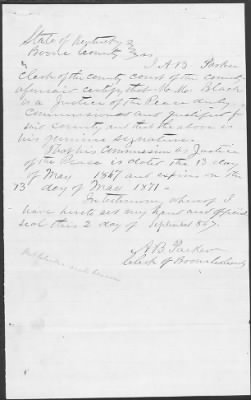 State of Kentucky
Boone County
I A B Parker
Clerk of the county court of the county
aforesaid certify that H. Mc. Black
is a Justice of the Peace duly
Commissioned and qualified for
said county and that the above is
his genuine signature.
That his Commission as Justice
of the Peace is dated the 13 day
of May 1867 and expires on the
13 day of May 1871 -
In testimony whereof I
have hereto set my hand and official
seal this 2 day of September 1867.
A B Parker
Clerk of Boone County